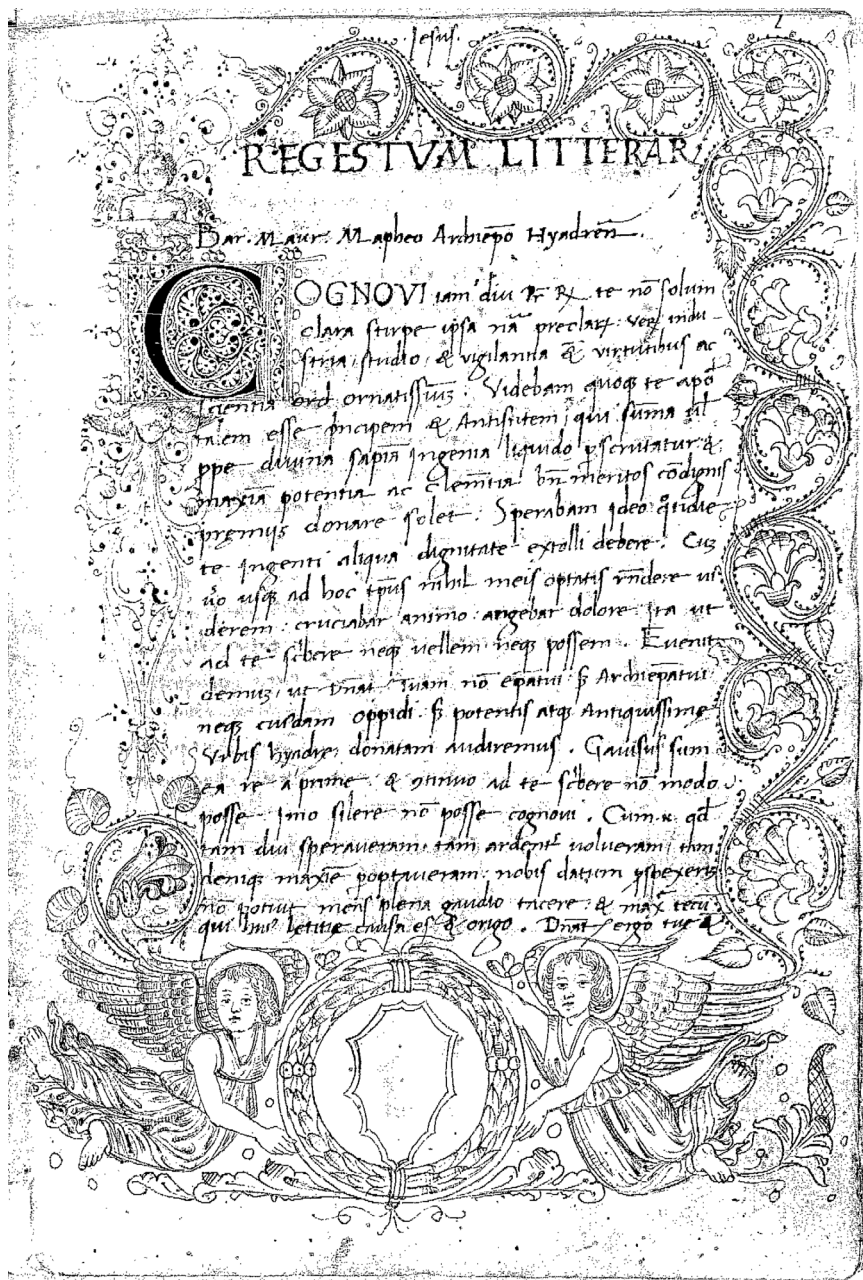 Jesus.
REGESTVM LITTERAR
Bar. Maur. Mapheo Archiepo Hyadren.
COGNOVI iam diu Pr Rx te no solum
clara stirpe ipsa na preclarx veq indu-
stria studio & vigilantia & virtutibus ac
scientia ornatissimuz. Videbam quoqz te apo
talem esse principem & Antistitem qui suma
ppe divina sapia ingenia liquido pscrutatur &
maxia potentia ac clementia bn meritos condignis
premijs donare solet. Sperabam ideo qtidie
te ingenti aliqua dignitate extolli debere. Cuz
vo usqz ad hoc tpus nihil meis optatis rndere vi
derem cruciabar animo angebar dolore ita ut
ad te scbere neqz vellem neqz possem. Evenit
demuz ut Dnat Tuam no epatui s Archiepatui
neqz cuidam oppidi s potentis atqz Antiquissime
Vrbis hyadre donatam audiremus. Gavisus sum
ea re aprime & 9tinuo ad te scbere no modo
posse Imo silere no posse cognovi. Cum qd
tam diu speraveram tam ardentr volueram tam
deniqz maxie poptaveram nobis datum pspexeriz
no potuit mens plena gaudio tacere & max tecu
qui letitie causa es & origo. Dnat ergo tue